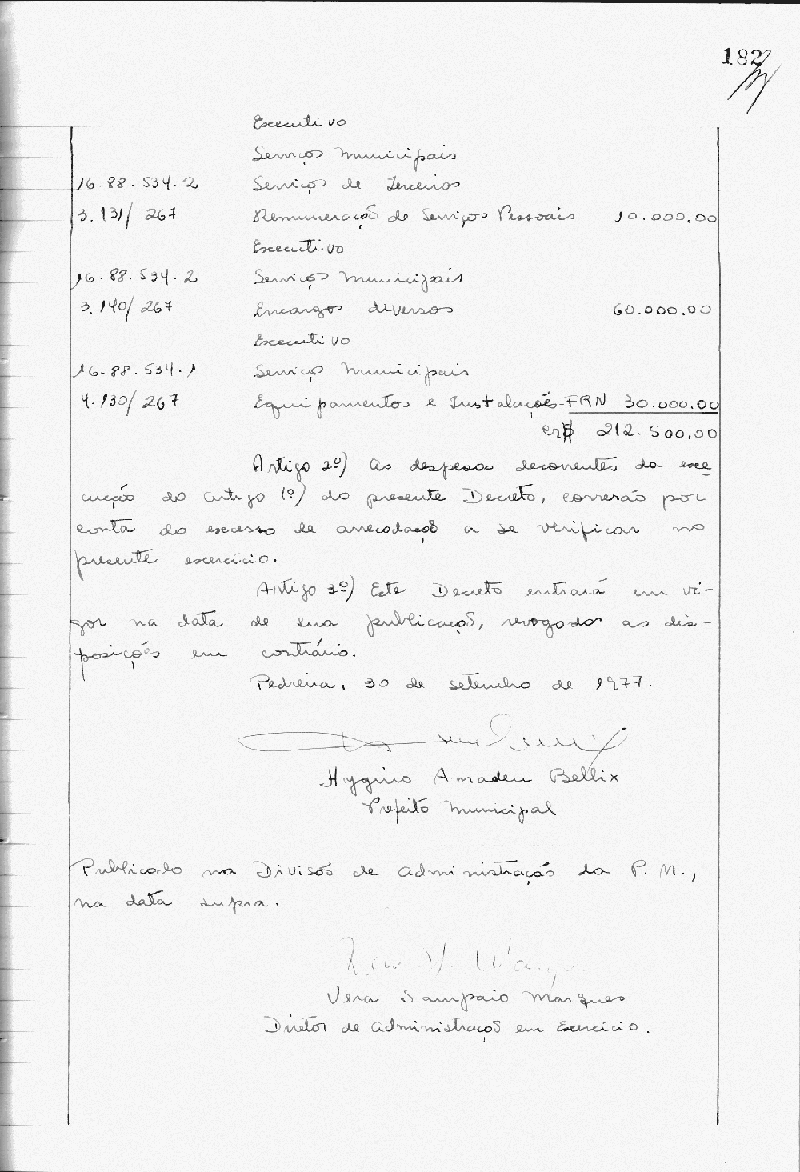 182
Executivo
Serviços Municipais
16.88.534.2 Serviços de Terceiros
3.131/267 Remuneração de Serviços Pessoais 10.000,00
Executivo
16.88.534.2 Serviços Municipais
3.140/267 Encargos diversos 60.000,00
Executivo
16.88.534.1 Serviços Municipais
4.130/267 Equipamentos e Instalações-FRN 30.000,00
cr$ 212.500,00
Artigo 2º) As despesa decorrentes da exe-
cucção do artigo 1º) do presente Decreto, correrão por
conta do excesso de arrecadação a se verificar no
presente exercício.
Artigo 3º) Este Decreto entrará em vi-
gor na data de sua publicação, revogados as dis-
posições em contrário.
Pedreira, 30 de setembro de 1977.
Hygino Amadeu Bellix
Prefeito Municipal
Publicado na Divisão de Administração da P. M.,
na data supra.
Vera Sampaio Marques
Diretor de Administração em Exercício.